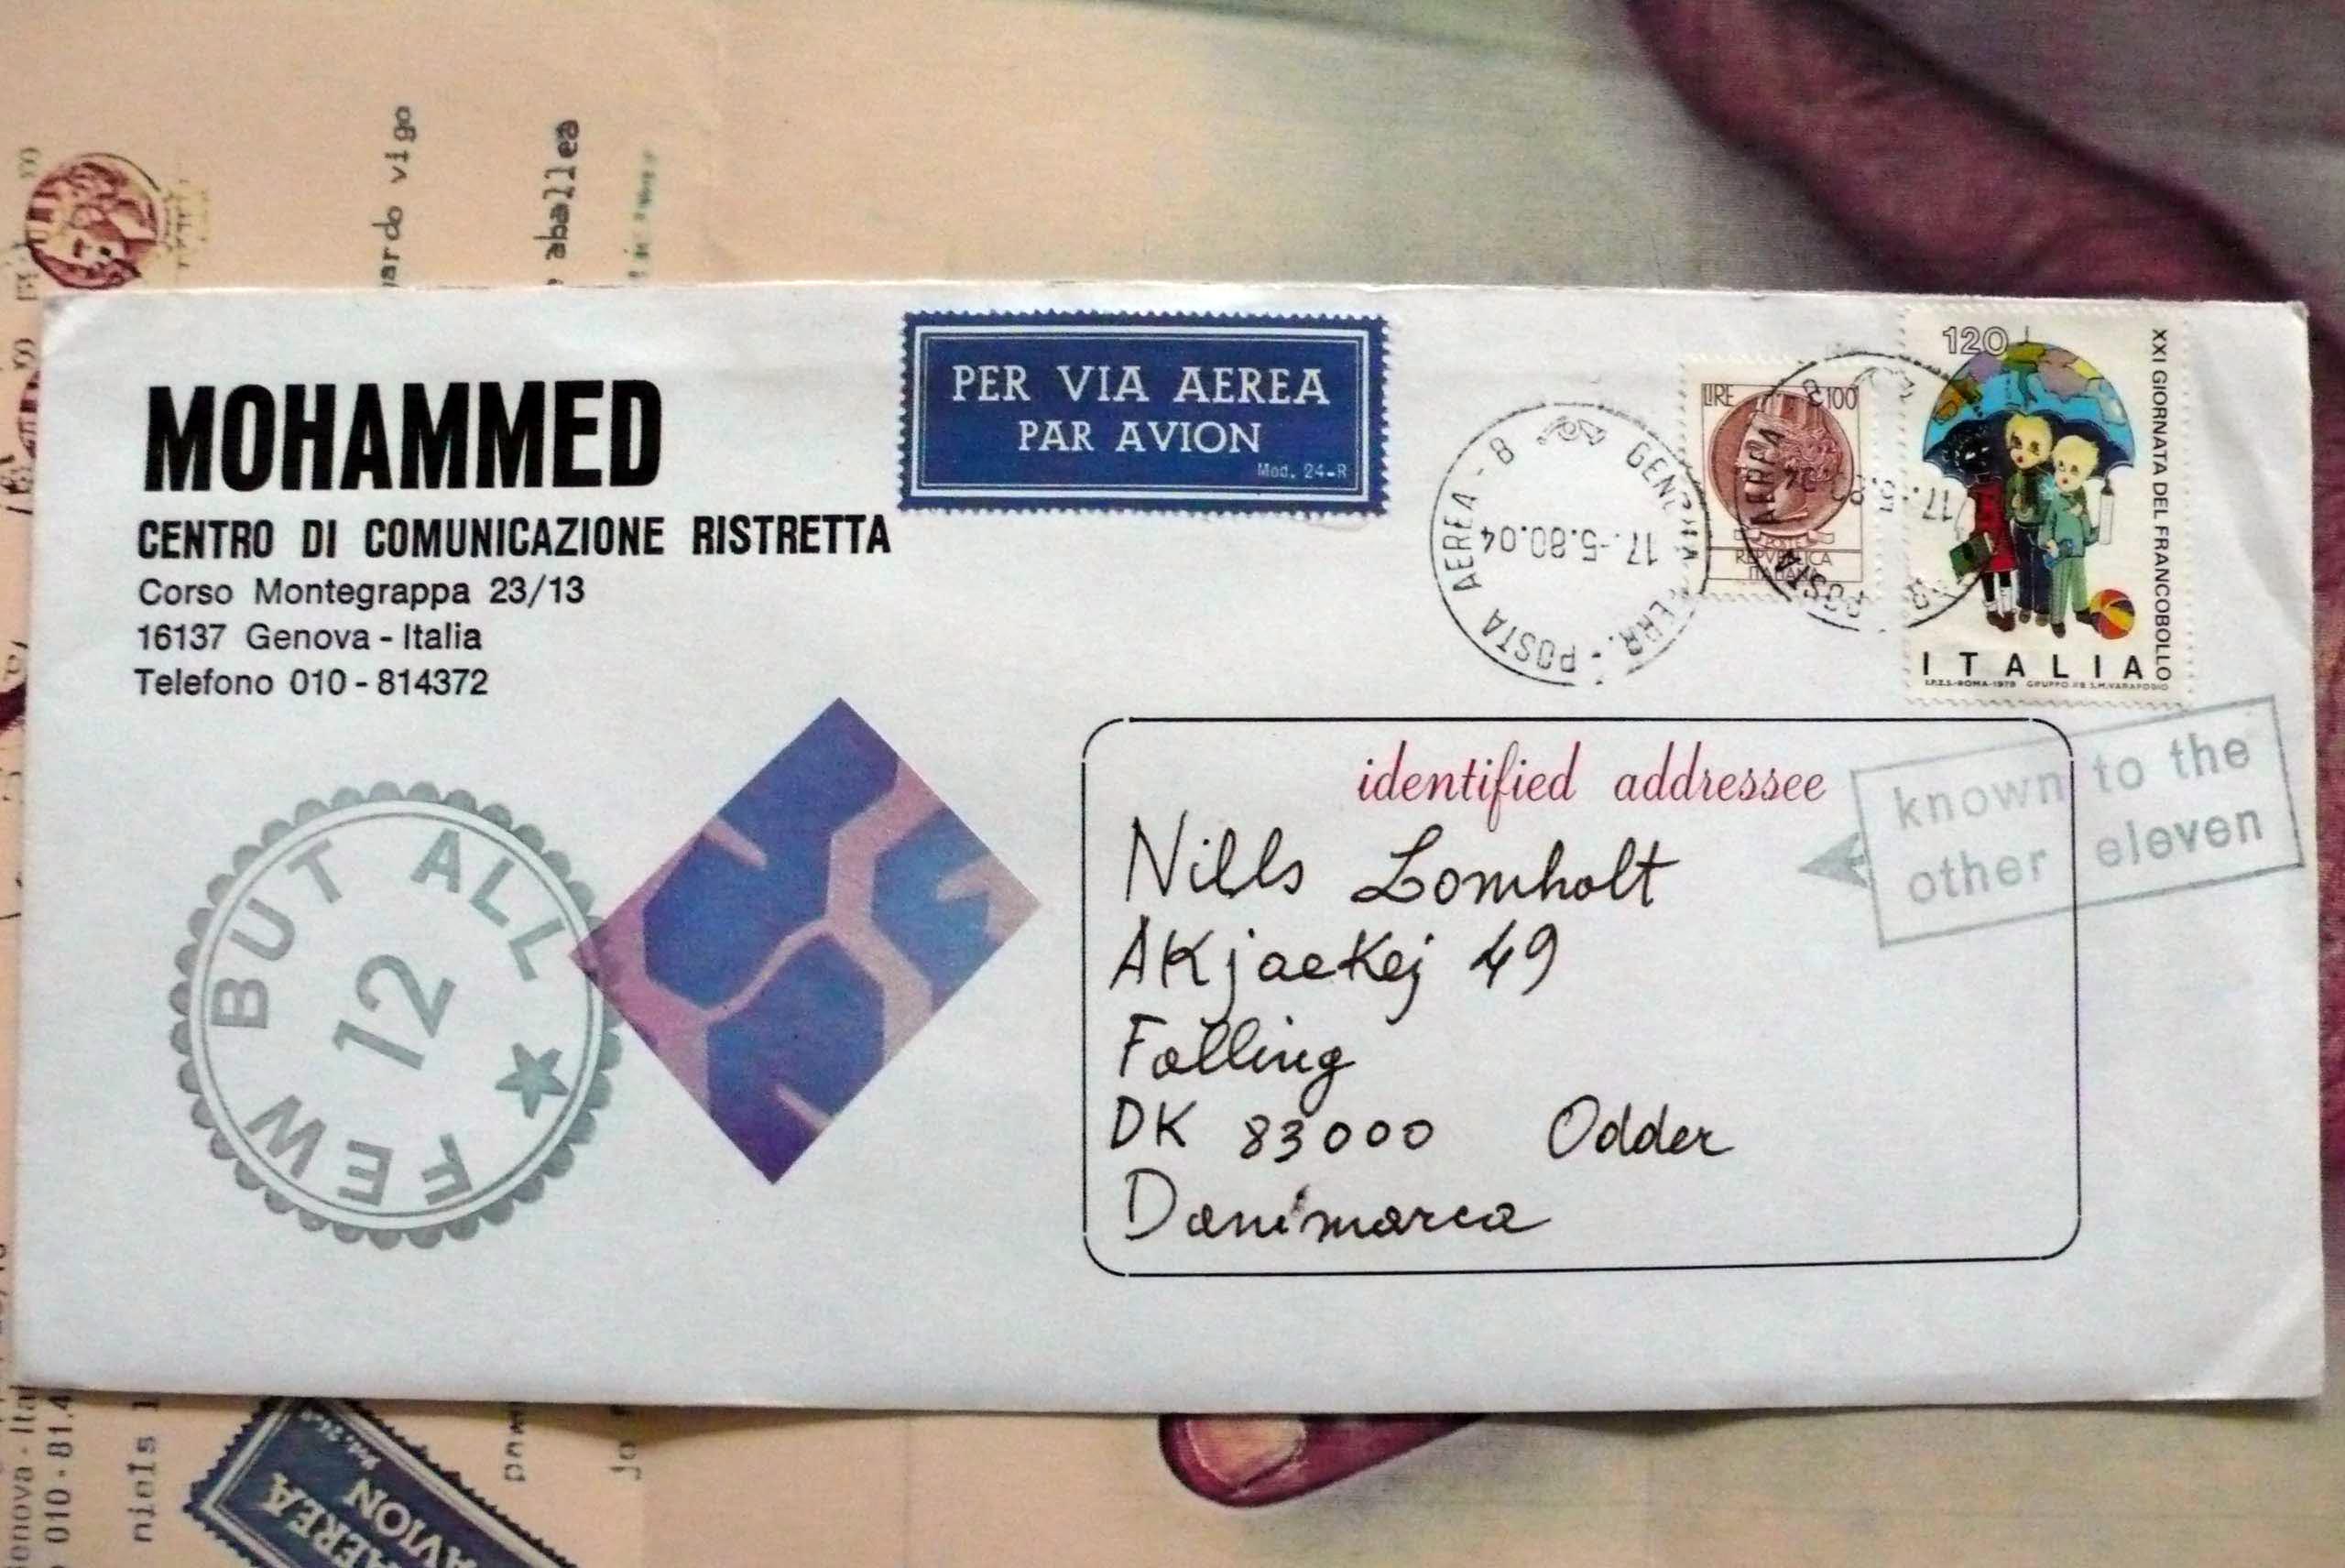 ardo vigo
aballea
MOHAMMED
CENTRO DI COMUNICAZIONE RISTRETTA
Corso Montegrappa 23/13
16137 Genova - Italia
Telefono 010 - 814372
PER VIA AEREA
PAR AVION
Mod. 24-R
POSTA AEREA - 8
17.-5.80.04
LIRE 100
REPVBBLICA
ITALIANA
POSTA AEREA
17.
120
XXI GIORNATA DEL FRANCOBOLLO
ITALIA
I.P.Z.S.-ROMA-1979
BUT ALL
12
FEW
identified addressee
known to the
other eleven
Nills Lomholt
AKjaekej 49
Falling
DK 83000 Odder
Danimarca
enova - Ital
010 - 81.4
niels
AEREA
AVION